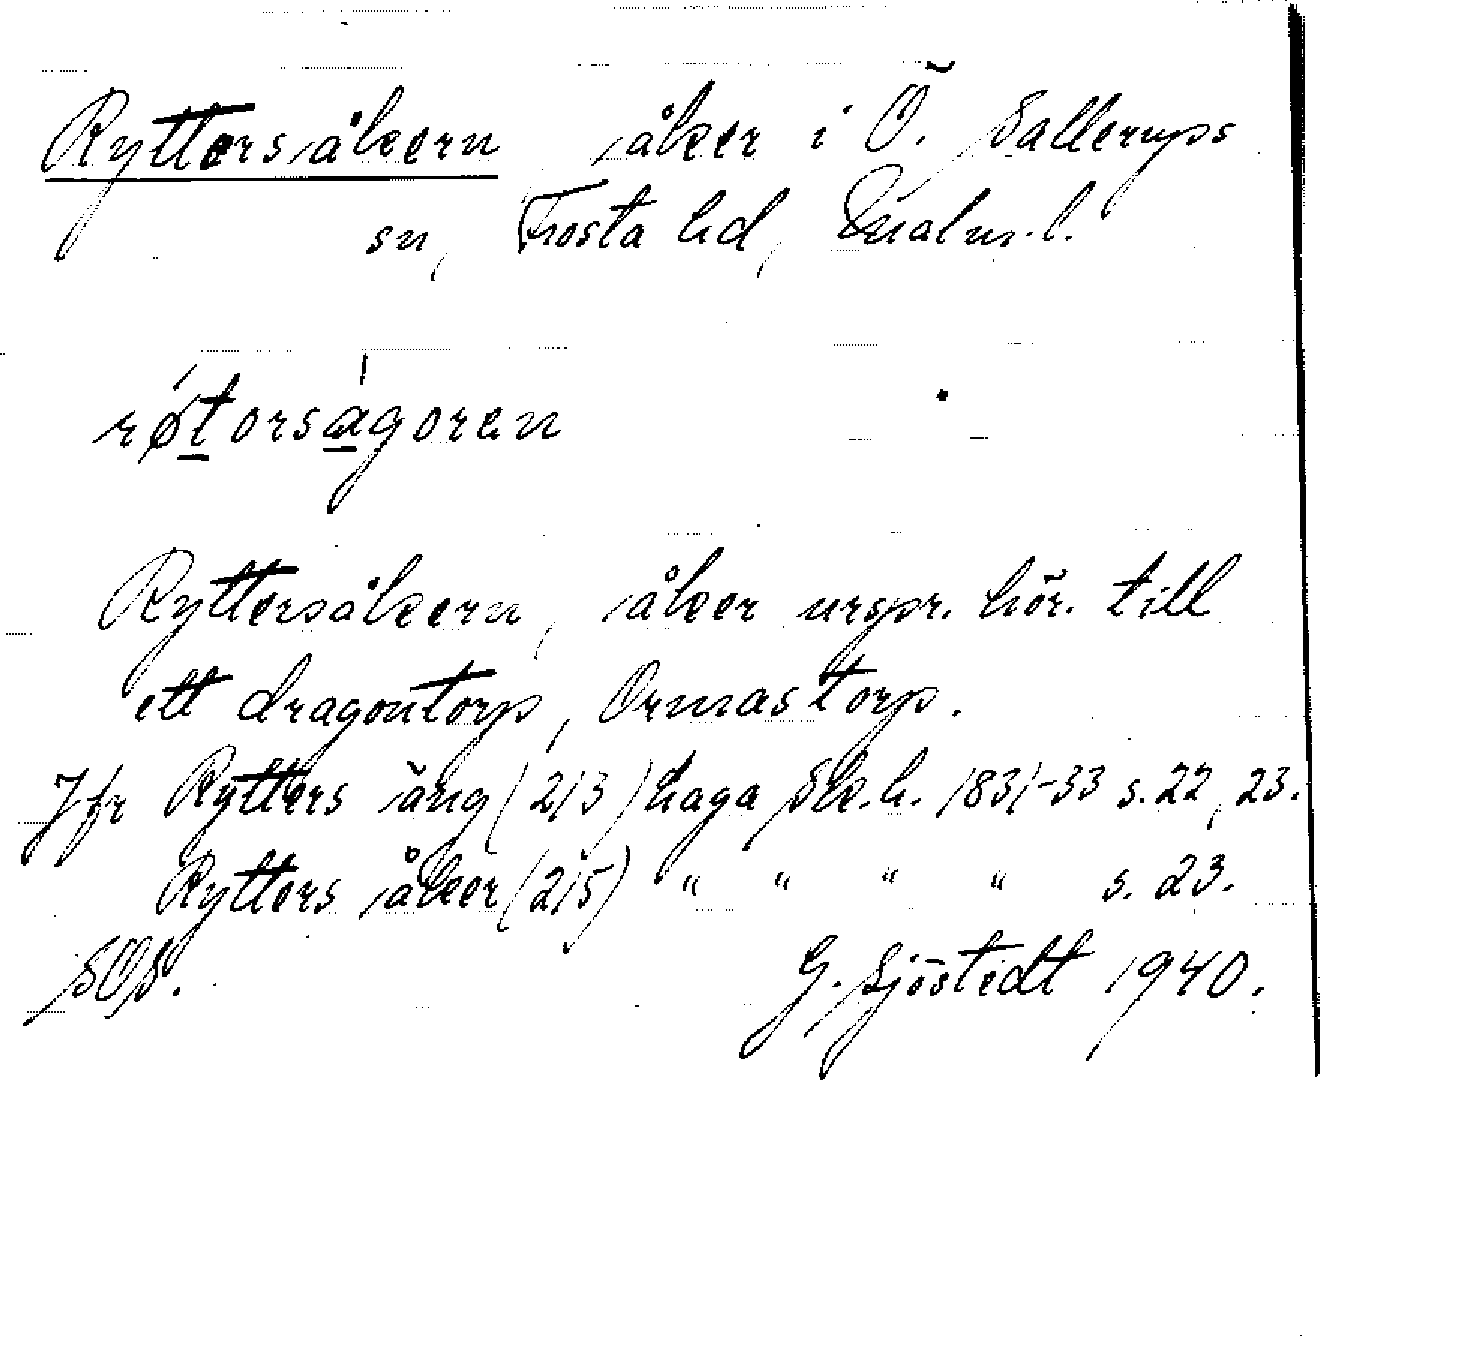 Ryttersåkern åker i Ö. Sallerups
sn, Frosta hd, Malm.l.
røtorsagoren
Ryttersåkern, åker urspr. hör. till
ett dragontorp, Ormastorp.
Jfr Rytters äng (213) haga Sk.h. 1831-33 s. 22, 23.
Rytters åker (215) " " " " s. 23.
SOS.
G. Sjöstedt 1940.